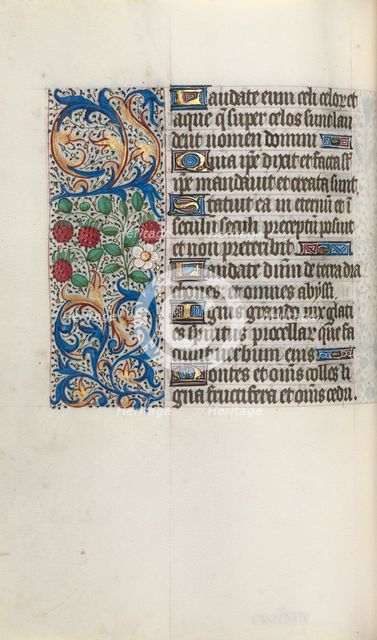 Laudate eum celi celor et
aque q̄ super celos sunt lau
dent nomen domini
Quia ip̄e dixit et facta s̄t
ip̄e mandavit et creata sunt
Statuit ea in eternū et ī
seculū seculi preceptū posuit
et non preteribit
Laudate dūm de terra dra
chones et omnes abyssi
Ignis grando nix glati
es spiritus procellar que fa
ciunt verbum eius
Montes et om̄s colles li
gna fructifera et om̄s cedri.
Heritage
Heritage
Heritage
Heritage